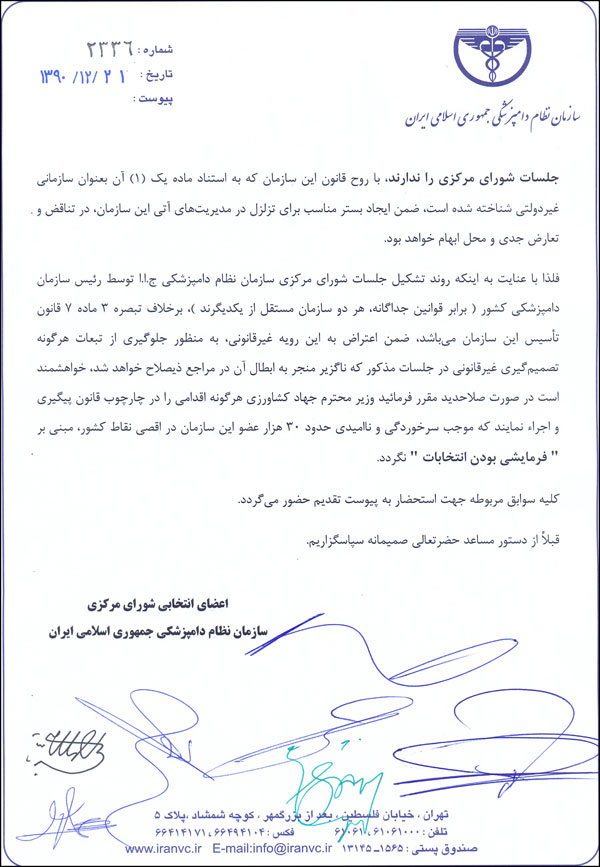 شماره : ۲۳۳۶
تاریخ : ۱۳۹۰/۱۲/۲۱
پیوست :
سازمان نظام دامپزشکی جمهوری اسلامی ایران
جلسات شورای مرکزی را ندارند، با روح قانون این سازمان که به استناد ماده یک (۱) آن بعنوان سازمانی
غیردولتی شناخته شده است، ضمن ایجاد بستر مناسب برای تزلزل در مدیریت‌های آتی این سازمان، در تناقض و
تعارض جدی و محل ابهام خواهد بود.
فلذا با عنایت به اینکه روند تشکیل جلسات شورای مرکزی سازمان نظام دامپزشکی ج.ا.ا توسط رئیس سازمان
دامپزشکی کشور ( برابر قوانین جداگانه، هر دو سازمان مستقل از یکدیگرند )، برخلاف تبصره ۳ ماده ۷ قانون
تأسیس این سازمان می‌باشد، ضمن اعتراض به این رویه غیرقانونی، به منظور جلوگیری از تبعات هرگونه
تصمیم‌گیری غیرقانونی در جلسات مذکور که ناگزیر منجر به ابطال آن در مراجع ذیصلاح خواهد شد، خواهشمند
است در صورت صلاحدید مقرر فرمائید وزیر محترم جهاد کشاورزی هرگونه اقدامی را در چارچوب قانون پیگیری
و اجراء نمایند که موجب سرخوردگی و ناامیدی حدود ۳۰ هزار عضو این سازمان در اقصی نقاط کشور، مبنی بر
" فرمایشی بودن انتخابات " نگردد.
کلیه سوابق مربوطه جهت استحضار به پیوست تقدیم حضور می‌گردد.
قبلاً از دستور مساعد حضرتعالی صمیمانه سپاسگزاریم.
اعضای انتخابی شورای مرکزی
سازمان نظام دامپزشکی جمهوری اسلامی ایران
تهران ، خیابان فلسطین ، بعد از بزرگمهر ، کوچه شمشاد ،پلاک ۵
تلفن : ۶۱۰۶۱۰۰۰ فکس : ۶۶۴۹۴۱۰۴ ـ ۶۶۴۱۴۱۷۱
صندوق پستی : ۱۵۶۵ـ ۱۳۱۴۵ E-mail:info@iranvc.ir www.iranvc.ir